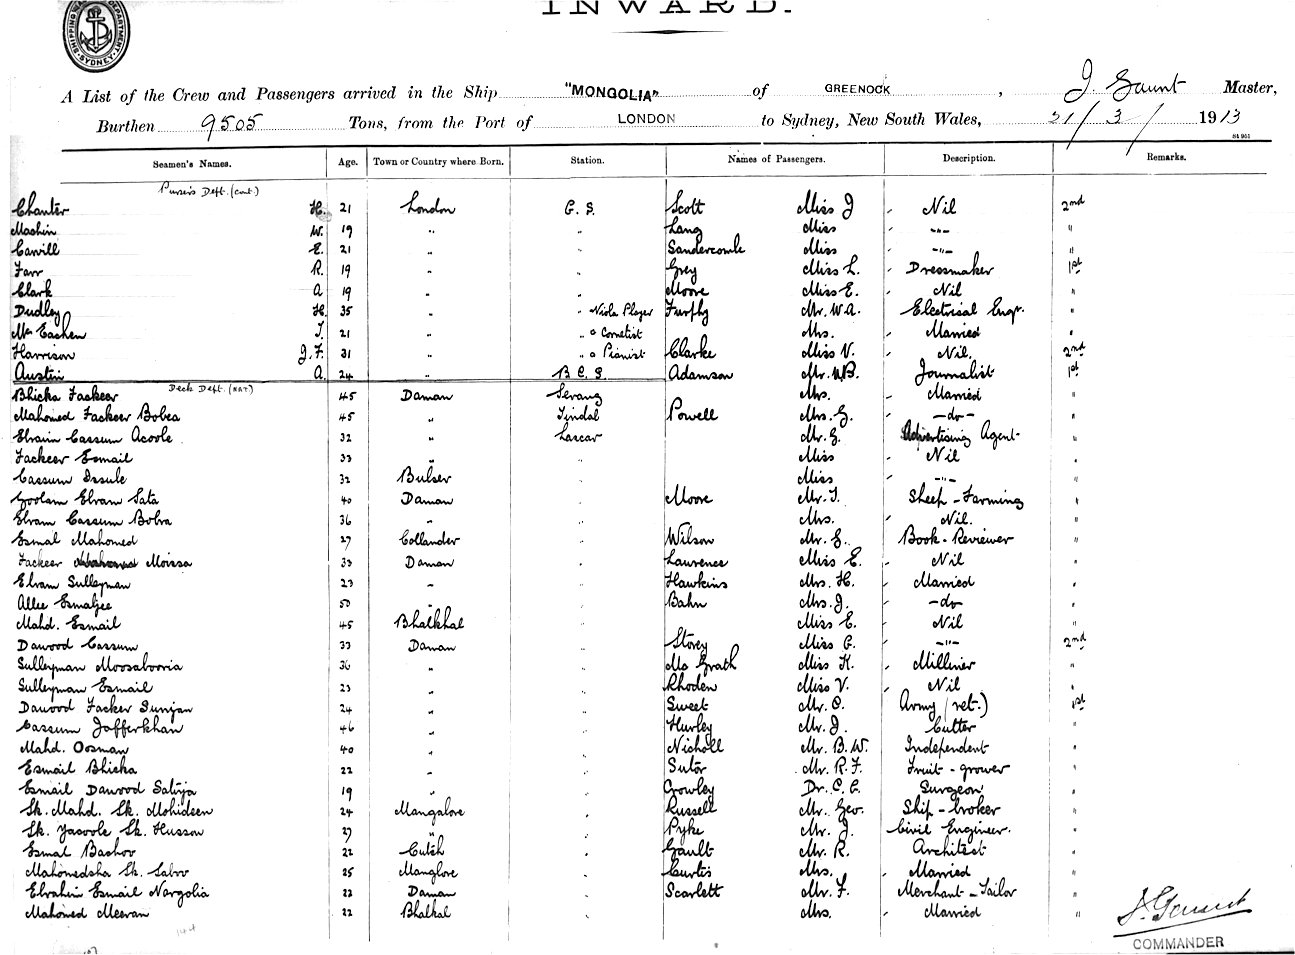 INWARD.
SHIPPING DEPARTMENT SYDNEY
A List of the Crew and Passengers arrived in the Ship "MONGOLIA" of GREENOCK, J. Gaunt Master,
Burthen 9505 Tons, from the Port of LONDON to Sydney, New South Wales, 31/3/1913
Seamen's Names. Age. Town or Country where Born. Station. Names of Passengers. Description. Remarks.
Purser's Dept. (cont.)
Chanter H. 21 London G. S. Scott Miss J Nil 2nd
Machin W. 19 " " Lang Miss -"- "
Cavill E. 21 " " Sandercombe Miss -"- "
Farr R. 19 " " Grey Miss L. Dressmaker 1st
Clark A 19 " " Moore Miss E. Nil "
Dudley H. 35 " " Viola Player Furphy Mr. W.A. Electrical Engr. "
Mc Eachen J. 21 " " " Cornetist Mrs. Married "
Harrison J.F. 31 " " " Pianist Clarke Miss V. Nil. 2nd
Austin A. 24 " B C S. Adamson Mr. Journalist 1st
Deck Dept. (NAT)
Bhicka Fackeer 45 Daman Serang Mrs. Married "
Mahomed Fackeer Bobea 45 " Tindal Powell Mrs. G. -do- "
Ebraim Cassum Acoole 32 " Lascar Mr. G. Advertising Agent "
Fackeer Esmail 33 " " Miss Nil "
Cassum Issule 32 Bulser " Miss -"- "
Goolam Ebram Sata 40 Daman " Moore Mr. T. Sheep-Farming "
Ebram Cassum Bobra 36 " " Mrs. Nil. "
Esmal Mahomed 27 Collander " Wilson Mr. G. Book-Reviewer "
Fackeer Moissa 33 Daman " Laurence Miss E. Nil "
Ebram Sulleyman 23 " " Hawkins Mrs. H. Married "
Allee Esmaljee 50 " " Bahn Mrs. J. -do- "
Mahd. Esmail 45 Bhalkhal " Miss E. Nil "
Dawood Cassum 33 Daman " Storey Miss G. -"- 2nd
Sulleyman Moosabooria 36 " " Mc Grath Miss K. Milliner "
Sulleyman Esmail 23 " " Rhoden Miss V. Nil "
Dawood Facker Sunjan 24 " " Sweet Mr. C. Army (ret.) 1st
Cassum Jafferkhan 46 " " Hurley Mr. J. Cutter "
Mahd. Oosman 40 " " Nicholl Mr. B.W. Independent "
Esmail Bhicka 22 " " Sutor Mr. R.F. Fruit-grower "
Esmail Dawood Salvja 19 " " Crowley Dr. C.C. Surgeon "
Sk. Mahd. Sk. Mohideen 24 Mangalore " Russell Mr. Geo. Ship-broker "
Sk. Yacoole Sk. Husson 27 " " Pyke Mr. J. Civil Engineer. "
Esmal Bachov 22 Cutch " Gault Mr. R. Architect "
Mahomedsha Sk. Sabro 25 Manglore " Curtis Mrs. Married "
Ebrahim Esmail Nargolia 23 Daman " Scarlett Mr. F. Merchant-Tailor "
Mahomed Meeran 22 Bhalkal " Mrs. Married "
J. Gaunt
COMMANDER